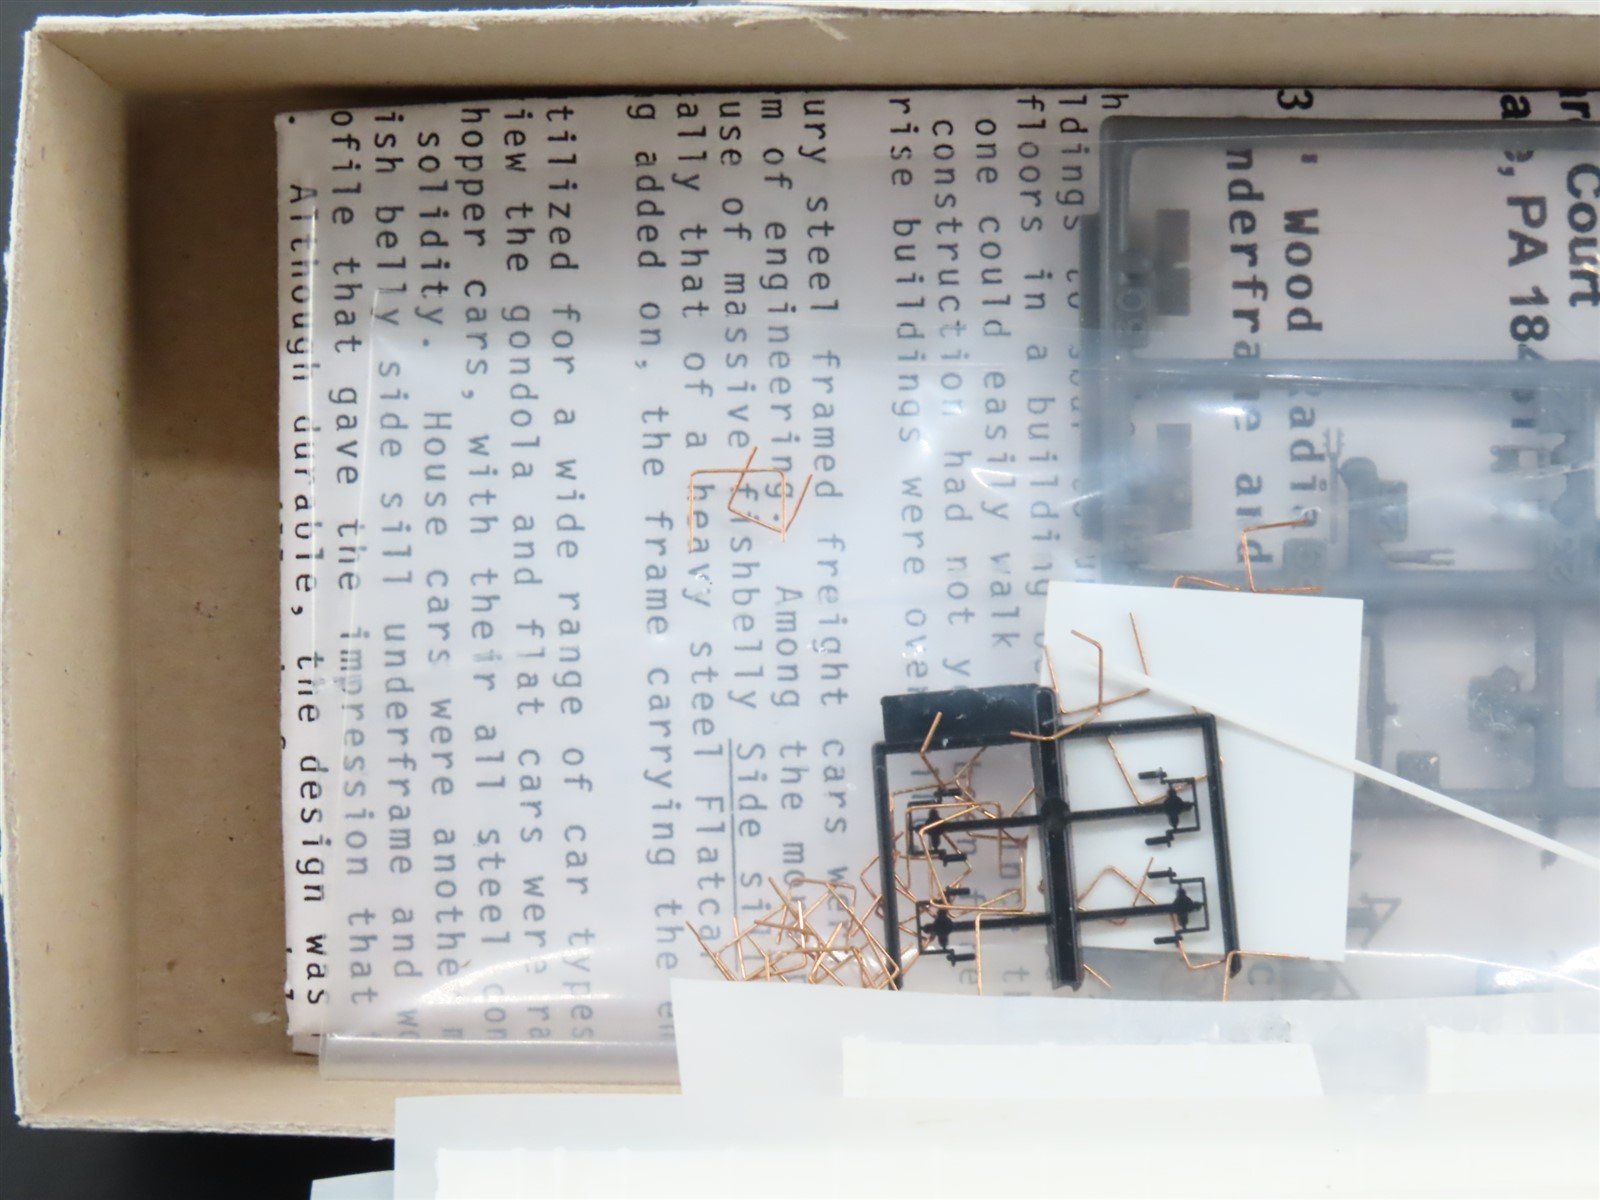 Court
PA 184
3' Wood
nderframe and
h
ldings to
floors in a building
one could easily walk
construction had not y
rise buildings were over
ury steel framed freight cars wer
m of engineering. Among the mo
use of massive fishbelly Side si
ally that of a heavy steel Flatca
g added on, the frame carrying the en
tilized for a wide range of car types
iew the gondola and flat cars were ra
hopper cars, with their all steel con
solidity. House cars were anothe
ish belly side sill underframe and wo
ofile that gave the impression that
. Although durable, the design was